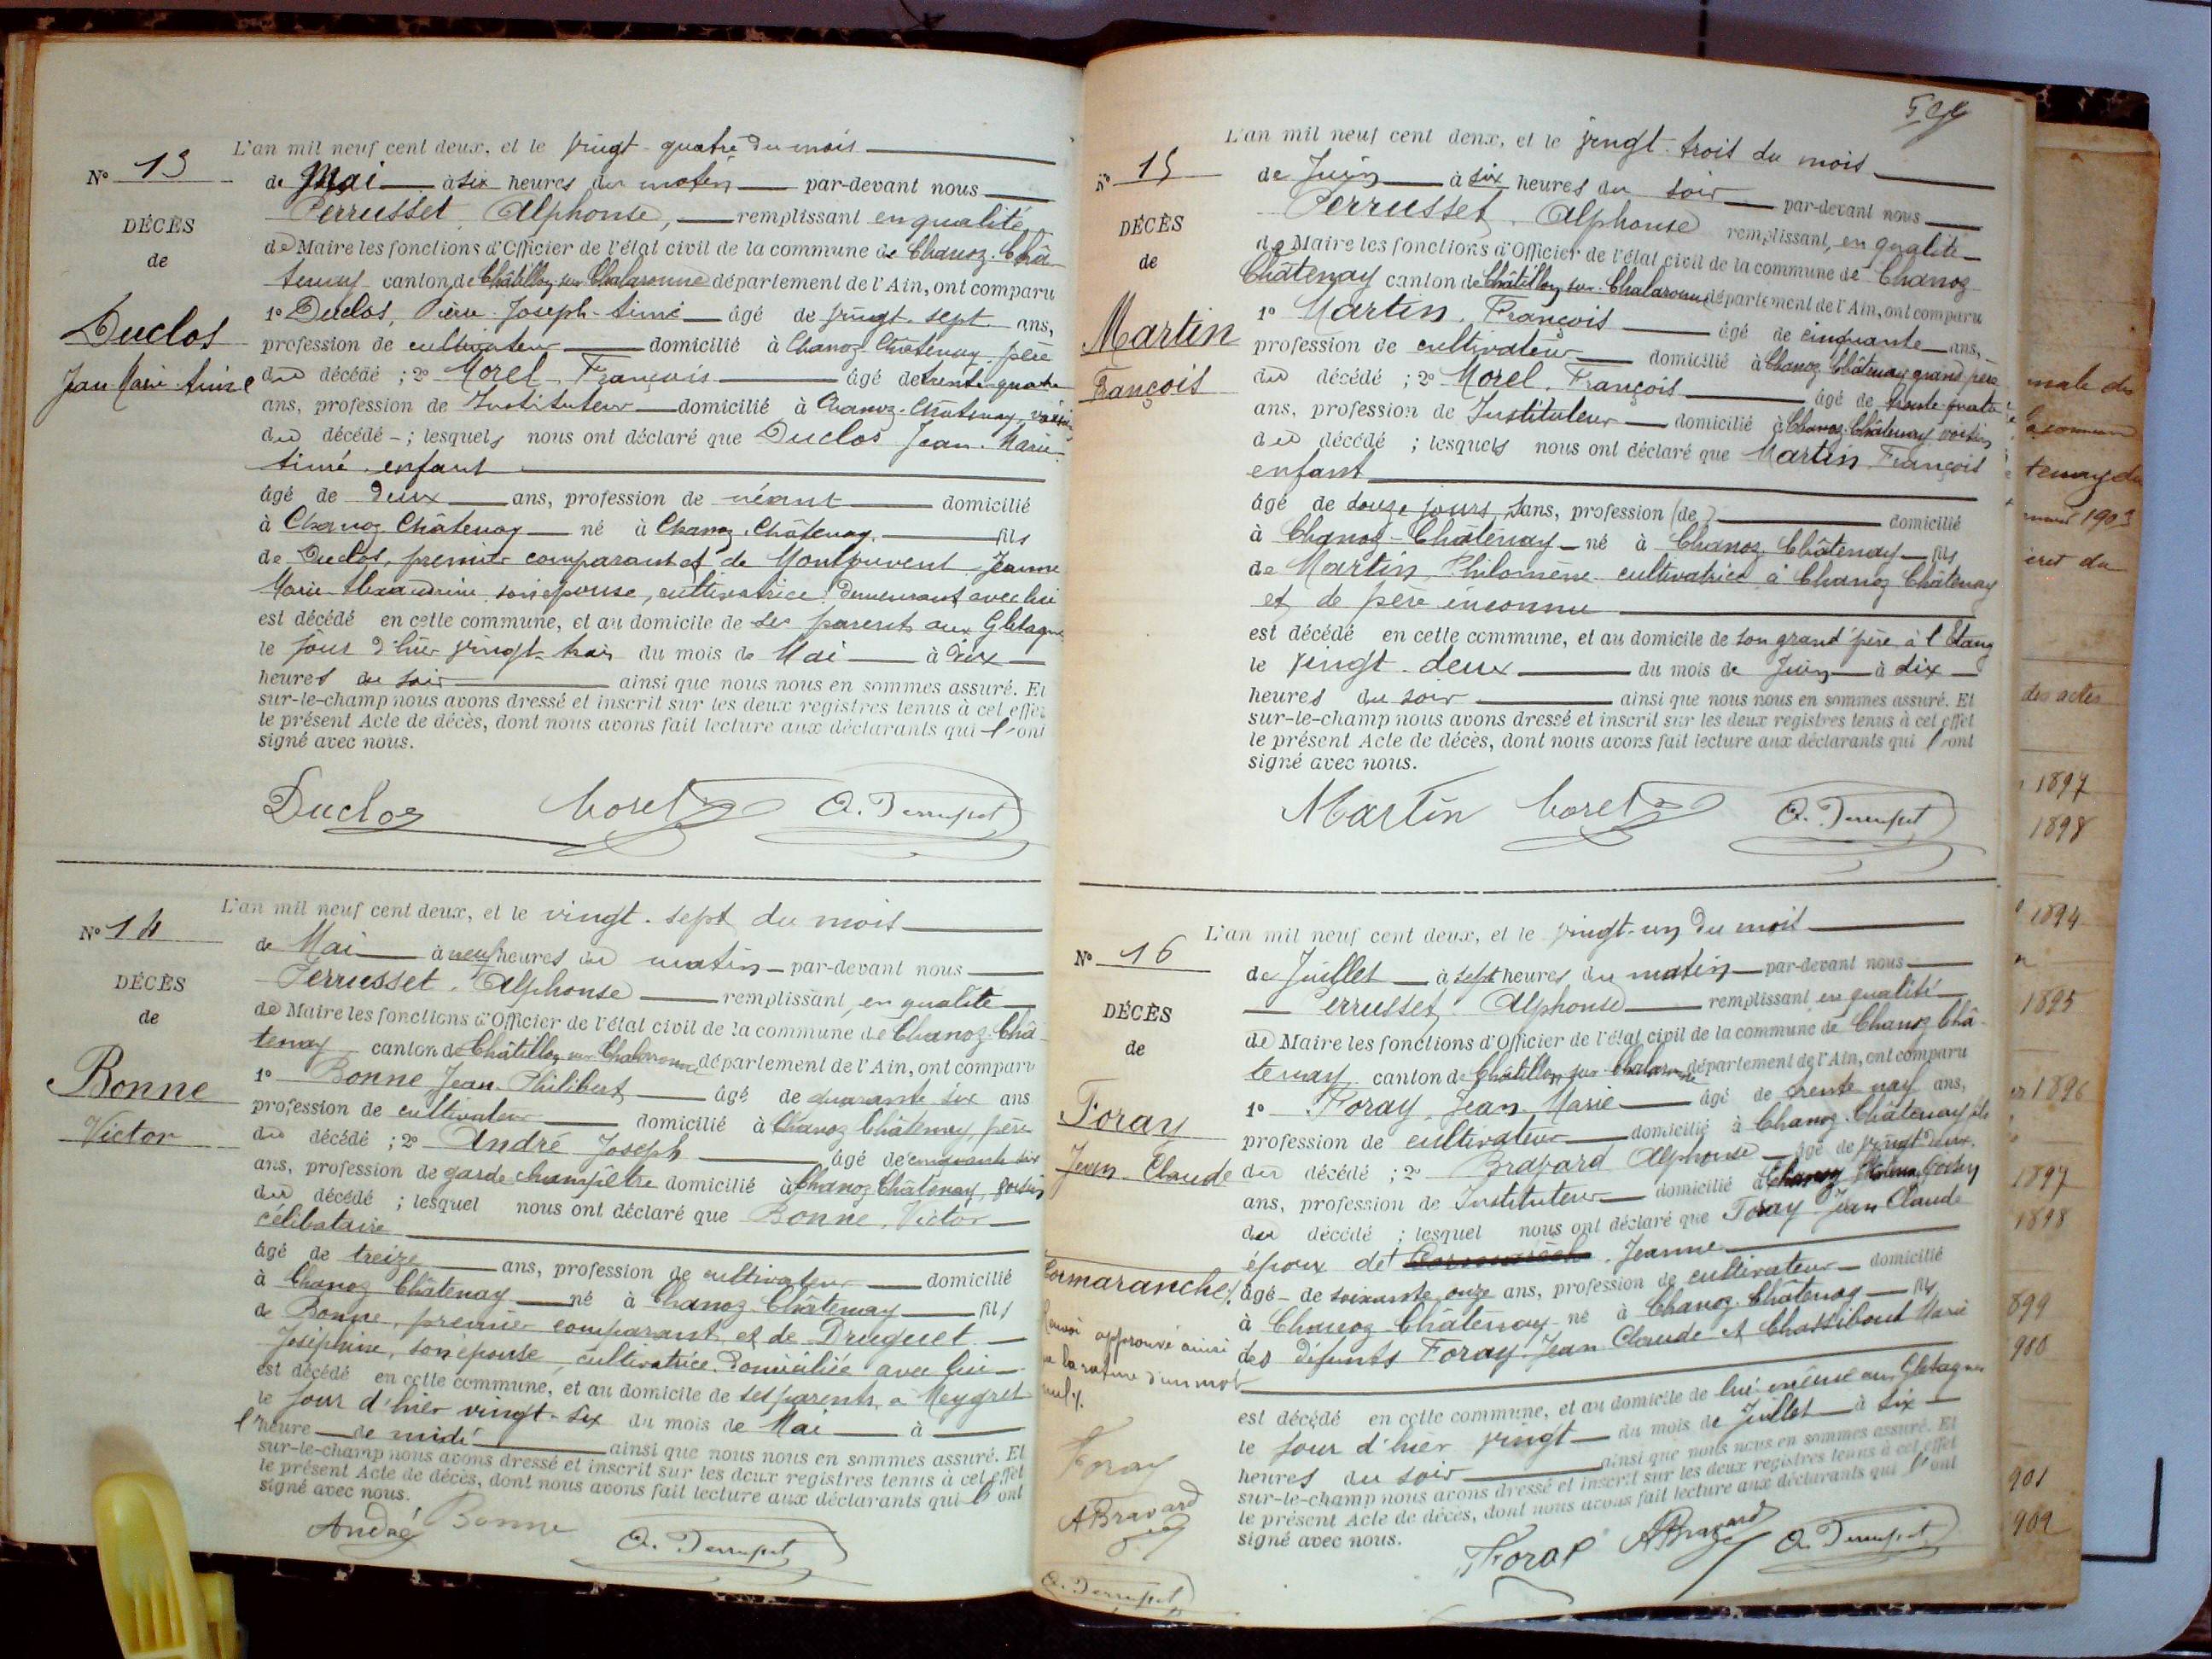 L'an mil neuf cent deux, et le vingt-quatre du mois
N° 13
de Mai à six heures du matin par-devant nous
Perrusset Alphonse, remplissant en qualité
DÉCÈS
de Maire les fonctions d'Officier de l'état civil de la commune de Chanoz-Châ-
de
tenay canton de Châtillon sur Chalaronne département de l'Ain, ont comparu
1° Duclos, Pierre-Joseph-Aimé âgé de vingt-sept ans,
Duclos
profession de cultivateur domicilié à Chanoz-Châtenay père
Jean Marie Aimé
du décédé ; 2° Morel François âgé de trente-quatre
ans, profession de Instituteur domicilié à Chanoz-Châtenay, voisin
du décédé ; lesquels nous ont déclaré que Duclos Jean-Marie-
Aimé enfant
âgé de deux ans, profession de néant domicilié
à Chanoz Châtenay né à Chanoz-Châtenay fils
de Duclos, premier comparant et de Montouvent Jeanne
Marie Alexandrine son épouse, cultivatrice demeurant avec lui
est décédé en cette commune, et au domicile de ses parents aux Gletagnes
le jour d'hier vingt-trois du mois de Mai à dix
heures du soir ainsi que nous nous en sommes assuré. Et
sur-le-champ nous avons dressé et inscrit sur les deux registres tenus à cet effet
le présent Acte de décès, dont nous avons fait lecture aux déclarants qui l'ont
signé avec nous.
Duclos Morel A. Perrusset
L'an mil neuf cent deux, et le vingt-sept du mois
N° 14
de Mai à neuf heures du matin par-devant nous
Perrusset Alphonse remplissant, en qualité
DÉCÈS
de Maire les fonctions d'Officier de l'état civil de la commune de Chanoz-Châ-
de
tenay canton de Châtillon sur Chalaronne département de l'Ain, ont comparu
1° Bonne Jean Philibert âgé de quarante six ans
Bonne
profession de cultivateur domicilié à Chanoz Châtenay, père
Victor
du décédé ; 2° André Joseph âgé de cinquante six
ans, profession de garde champêtre domicilié à Chanoz Châtenay, voisin
du décédé ; lesquel nous ont déclaré que Bonne, Victor
célibataire
âgé de treize ans, profession de cultivateur domicilié
à Chanoz Châtenay né à Chanoz-Châtenay fils
de Bonne, premier comparant et de Druguet
Joséphine, son épouse, cultivatrice domiciliée avec lui
est décédé en cette commune, et au domicile de ses parents, a Meygret
le jour d'hier vingt-six du mois de Mai à
l'heure de midi ainsi que nous nous en sommes assuré. Et
sur-le-champ nous avons dressé et inscrit sur les deux registres tenus à cet effet
le présent Acte de décès, dont nous avons fait lecture aux déclarants qui l'ont
signé avec nous.
André Bonne A. Perrusset
L'an mil neuf cent deux, et le vingt-trois du mois
N° 15
de Juin à six heures du soir par-devant nous
Perrusset, Alphonse remplissant, en qualité
DÉCÈS
de Maire les fonctions d'Officier de l'état civil de la commune de Chanoz
de
Châtenay canton de Châtillon sur Chalaronne département de l'Ain, ont comparu
1° Martin, François âgé de cinquante ans,
Martin
profession de cultivateur domicilié à Chanoz Châtenay grand père
François
du décédé ; 2° Morel, François âgé de trente quatre
ans, profession de Instituteur domicilié à Chanoz-Châtenay voisin
du décédé ; lesquels nous ont déclaré que Martin François
enfant
âgé de douze jours, sans, profession (de) domicilié
à Chanoz-Châtenay né à Chanoz Châtenay fils
de Martin, Philomène cultivatrice à Chanoz Châtenay
et de père inconnu
est décédé en cette commune, et au domicile de son grand'père à l'Etang
le vingt-deux du mois de Juin à dix
heures du soir ainsi que nous nous en sommes assuré. Et
sur-le-champ nous avons dressé et inscrit sur les deux registres tenus à cet effet
le présent Acte de décès, dont nous avons fait lecture aux déclarants qui l'ont
signé avec nous.
Martin Morel A. Perrusset
L'an mil neuf cent deux, et le vingt-un du mois
N° 16
de Juillet à sept heures du matin par-devant nous
Perrusset, Alphonse remplissant en qualité
DÉCÈS
de Maire les fonctions d'Officier de l'état civil de la commune de Chanoz Châ-
de
tenay canton de Châtillon sur Chalaronne département de l'Ain, ont comparu
1° Foray, Jean-Marie âgé de trente neuf ans,
Foray
profession de cultivateur domicilié à Chanoz-Châtenay fils
Jean-Claude
du décédé ; 2° Bravard Alphonse âgé de vingt-deux
ans, profession de Instituteur domicilié à Chanoz
du décédé ; lesquel nous ont déclaré que Foray Jean Claude
époux de Jeanne
Cormaranche
âgé de soixante onze ans, profession de cultivateur domicilié
à Chanoz-Châtenay né à Chanoz-Châtenay fils
Renvoi approuvé ainsi
des défunts Foray Jean Claude et Chassibout Marie
que la rature d'un mot
nul
est décédé en cette commune, et au domicile de lui-même aux Gletagnes
le jour d'hier vingt du mois de Juillet à six
heures du soir ainsi que nous nous en sommes assuré. Et
sur-le-champ nous avons dressé et inscrit sur les deux registres tenus à cet effet
le présent Acte de décès, dont nous avons fait lecture aux déclarants qui l'ont
signé avec nous.
Foray
ABravard
A. Perrusset
Foray ABravard A. Perrusset
tenay du
1903
des actes
1897
1898
1894
1895
1896
1897
1898
899
900
901
902